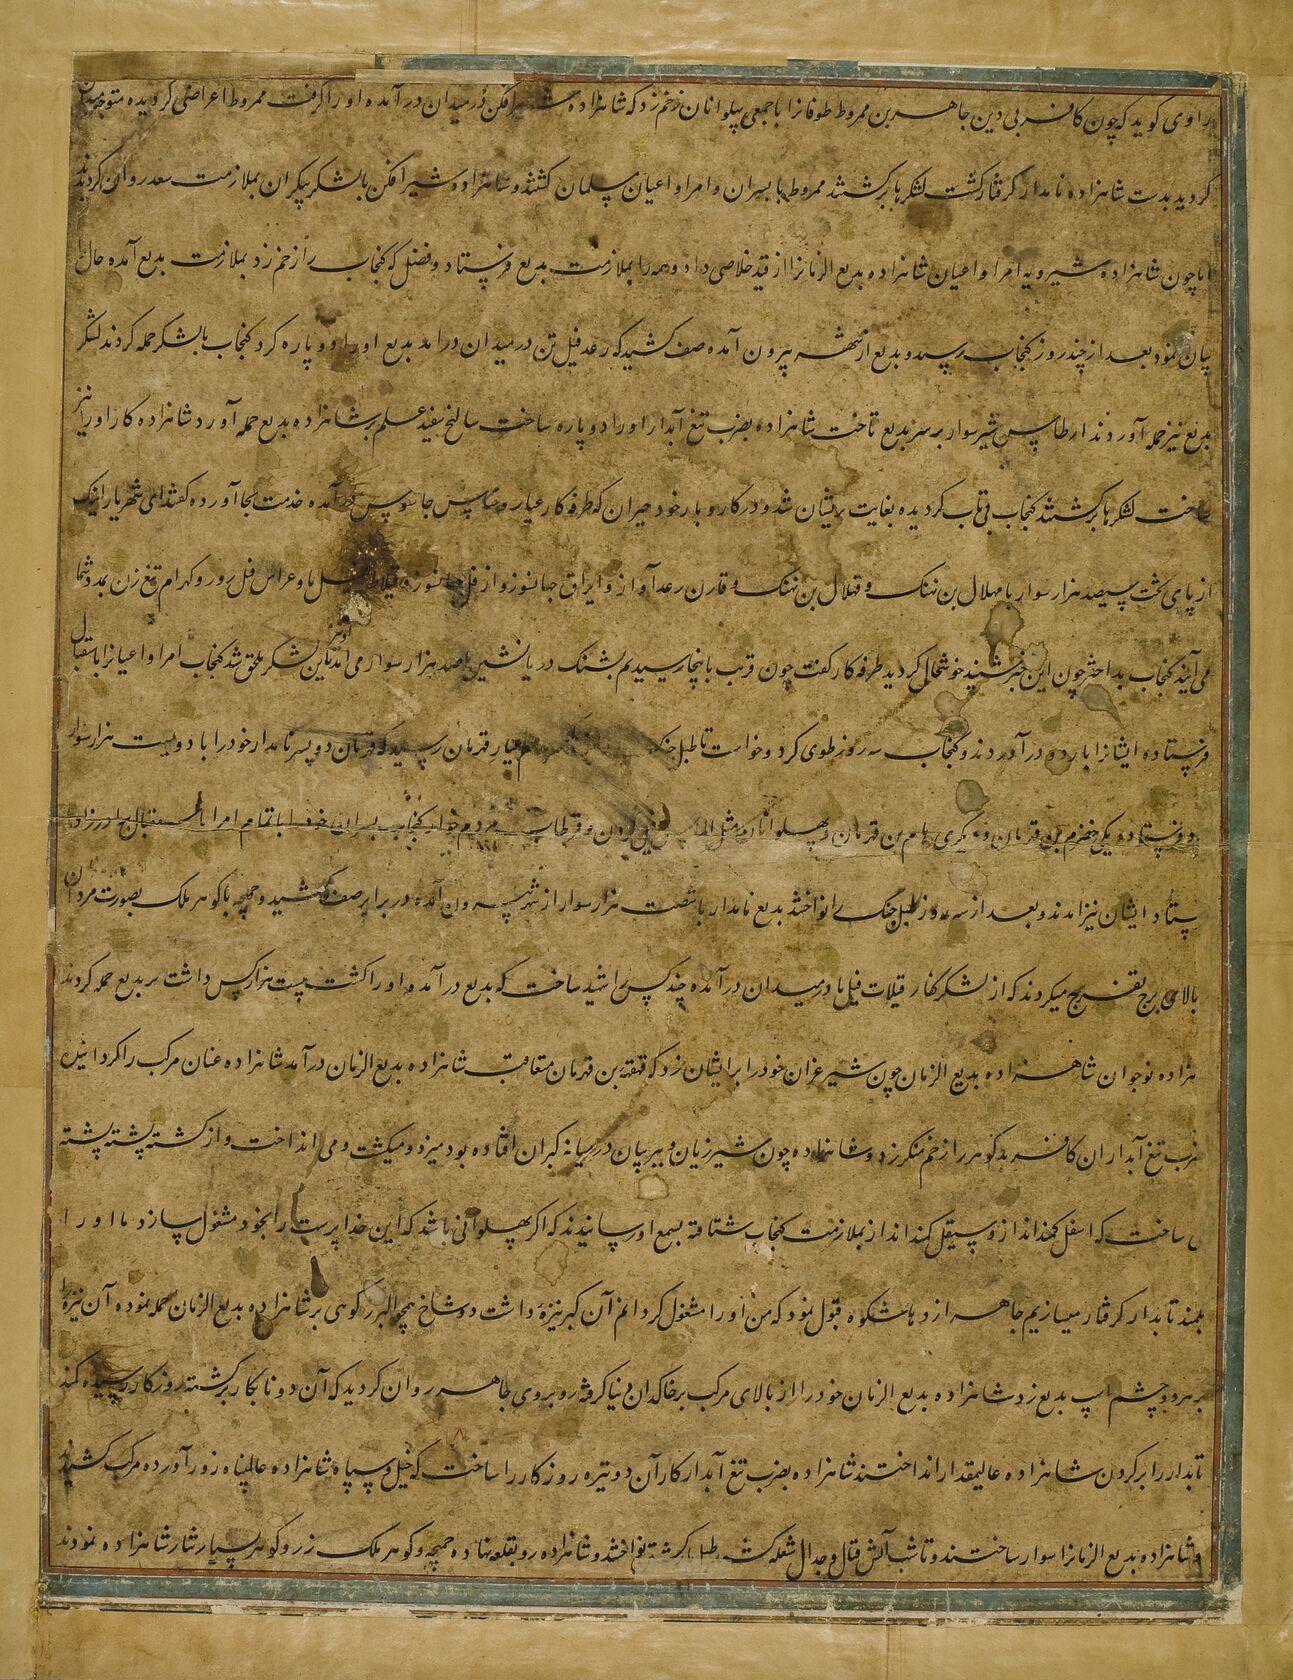 راوی کوید که چون کافر بی دین جاهر بن ممروط طوفانرا با جمعی پهلوانان زخم زد که شاهزاده شیر افکن در میدان در آمده او را گرفت ممروط اعراضی کردیده متوجه میدان
کردید بدست شاهزاده نامدار کرفتار کشت لشکرها برکشتند ممروط با پسران و امرا و اعیان مسلمان کشتند و شاهزاده شیر افکن با لشکر بیکران بملازمت سعد روان کردیدند
اما چون شاهزاده شیرویه امرا و اعیان شاهزاده بدیع الزمانرا از قید خلاصی داد و همه را بملازمت بدیع فرستاد و فضل که کنجاب را زخم زد بملازمت بدیع آمده حال
بیان نمود بعد از چند روز کنجاب رسید و بدیع از شهر بیرون آمده صف کشید که رعد فیل تن در میدان درآمد بدیع او را دو پاره کرد کنجاب با لشکر حمله کردند لشکر
بدیع نیز حمله آوردند ارطاس شیر سوار بر سر بدیع تاخت شاهزاده بضرب تیغ آبدار او را دو پاره ساخت سالخ سفید علم بر شاهزاده بدیع حمله آورد شاهزاده کار او را نیز
ساخت لشکرها برکشتند کنجاب بی تاب کردیده بغایت پریشان شد و در کار و بار خود حیران که طرفه کار عیار و جاسوس آمده خدمت بجا آورده کفتند ای شهریار اینک
از پای تخت سیصد هزار سوار با مهلال بن نهنک و قهلال بن نهنک و قارن رعد آواز و ایراق جهانسوز و فیل پا و عراس فیل زور و کهرام تیغ زن بمدد شما
می آیند کنجاب بد اختر چون این خبر شنید خوشحال کردید طرفه کار کفت چون قریب باینجا رسیدیم پشنک دریانشین با صد هزار سوار می آمد باین لشکر ملحق شد کنجاب امرا و اعیانرا باستقبال
فرستاده ایشانرا بارد و در آوردند و کنجاب سه روز طوی کرد و خواست تا طبل جنک عیار قهرمان رسید که قهرمان دو پسر نامدار خود را با دویست هزار سوار
فرستاده یکی خضرم بن قهرمان و دیکری بن قهرمان و پهلوانان مثل و قرطاب مردم خوار کنجاب پسران خود را با تمام امرا باستقبال برادرزادها
فرستاد ایشان نیز آمدند و بعد از سه روز طبل جنک را نواختند بدیع نامدار با شصت هزار سوار از شهر بیرون آمده در برابر صف کشید و جمچه با کوهر ملک بصورت مردان
بالای برج تفرج میکردند که از لشکر کفار قیلات فیل پا در میدان درآمده چند کس را شهید ساخت که بدیع درآمده او را کشت بیست هزار کس داشت بر بدیع حمله کردند
هزاده نوجوان شاهزاده بدیع الزمان چون شیر غران خود را بر ایشان زد که قهقهه بن قهرمان مقابل شاهزاده بدیع الزمان درآمد شاهزاده عنان مرکب را کردانیده
ضرب تیغ آبدار ان کافر بد کوهر را زخم منکر زد و شاهزاده چون شیر زیان و ببر بیان در میانه کبران افتاده بود میزد و میکشت و می انداخت و از کشته پشته پشته
می ساخت که اسفل کمند انداز و سیقل کمند انداز بملازمت کنجاب شتافته بسمع او رسانیدند که اکر پهلوانی باشد که این خدا پرست را بخود مشغول سازد ما او را
بکمند تابدار کرفتار میسازیم جاهر اژدها شکوه قبول نمود که من او را مشغول کردانم آن کبر نیزهٔ داشت دو شاخ همچو البرز کوهی بر شاهزاده بدیع الزمان حمله نموده آن نیزه را
بر هر دو چشم اسپ بدیع زد شاهزاده بدیع الزمان خود را از بالای مرکب برخاکدان دنیا کرفته روبروی جاهر روان کردید که آن دو نابکار برکشته روزکار رسیده کمند
تابدار را بر کردن شاهزاده عالیمقدار انداختند شاهزاده بضرب تیغ آبدار کار آن دو تیره روزکار را ساخت که خیل و سپاه شاهزاده عالمپناه زور آورده مرکب کشیدند
و شاهزاده بدیع الزمانرا سوار ساختند و تا شب آتش قتال و جدال شعله کش طبل برکشت نواختند و شاهزاده رو بقلعه نهاده جمچه و کوهر ملک زر و کوهر بسیار نثار شاهزاده نمودند